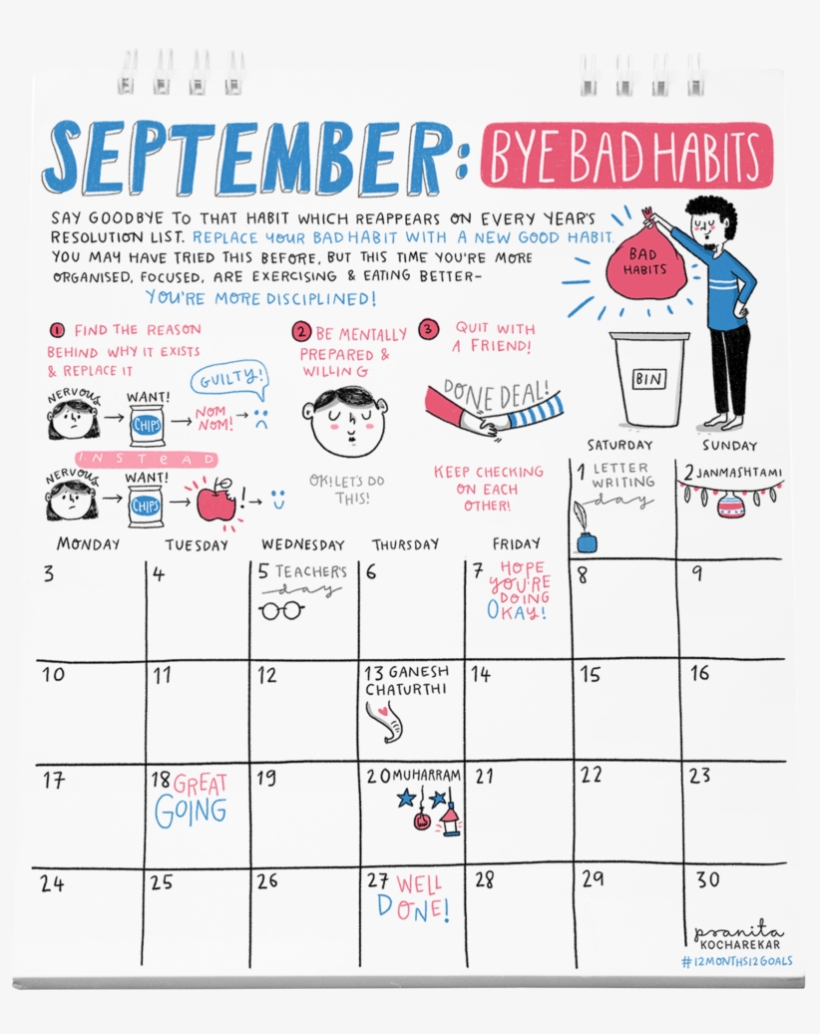 SEPTEMBER: BYE BAD HABITS
SAY GOODBYE TO THAT HABIT WHICH REAPPEARS ON EVERY YEAR'S
RESOLUTION LIST. REPLACE YOUR BAD HABIT WITH A NEW GOOD HABIT.
YOU MAY HAVE TRIED THIS BEFORE, BUT THIS TIME YOU'RE MORE
ORGANISED, FOCUSED, ARE EXERCISING & EATING BETTER-
YOU'RE MORE DISCIPLINED!
BAD
HABITS
BIN
1 FIND THE REASON
BEHIND WHY IT EXISTS
& REPLACE IT
GUILTY!
NERVOUS
WANT!
CHIPS
NOM
NOM!
INSTEAD
NERVOUS
WANT!
CHIPS
!
2 BE MENTALLY
PREPARED &
WILLING
OK! LET'S DO
THIS!
3 QUIT WITH
A FRIEND!
DONE DEAL!
KEEP CHECKING
ON EACH
OTHER!
SATURDAY SUNDAY
1 LETTER
WRITING
day
2 JANMASHTAMI
MONDAY TUESDAY WEDNESDAY THURSDAY FRIDAY
3 4 5 TEACHER'S
day
6 7 HOPE
YOU'RE
DOING
OKAY!
8 9
10 11 12 13 GANESH
CHATURTHI
14 15 16
17 18 GREAT
GOING
19 20 MUHARRAM 21 22 23
24 25 26 27 WELL
DONE!
28 29 30
pranita
KOCHAREKAR
#12MONTHS12GOALS